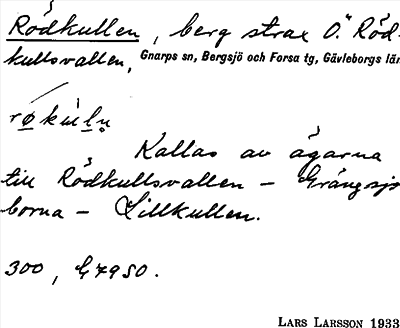 Rödkullen, berg strax O. Röd-
kullsvallen, Gnarps sn, Bergsjö och Forsa tg, Gävleborgs län
Kallas av ägarna
till Rödkullsvallen – Grängsjö
borna – Lillkullen.
300, G7950.
LARS LARSSON 1933